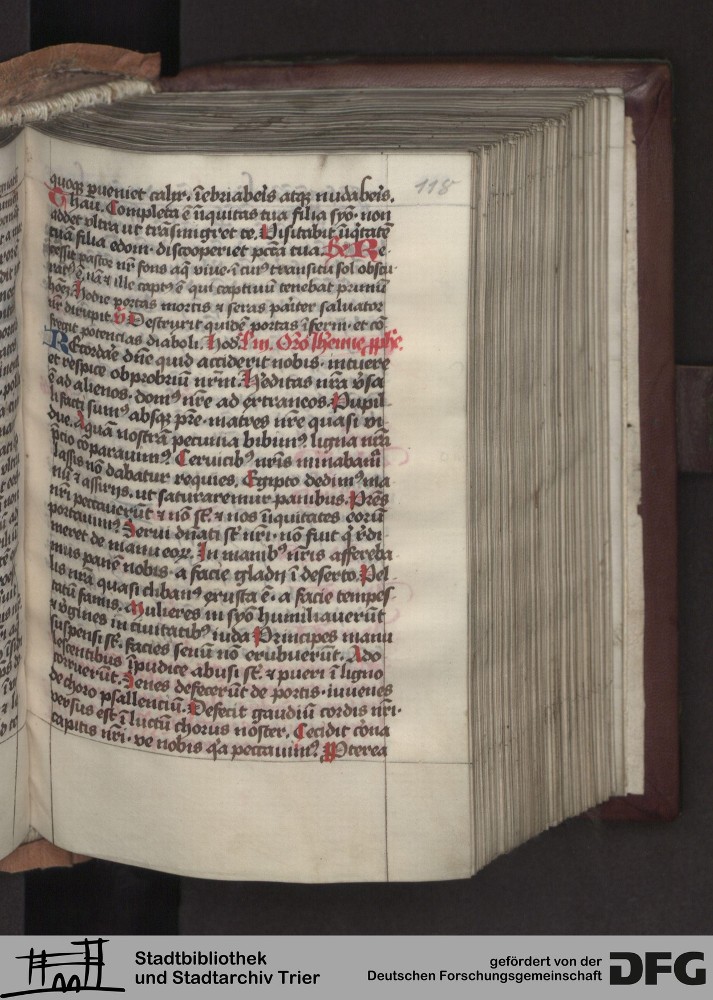 118
quoqꝫ ꝑueniet calix· ĩebriaberis atqꝫ nudaberis.
Thau. Completa ē iniquitas tua filia syõ· non
addet vltra ut trãsmigret te. Visitabit iniqtatē
tuā filia edom· discooperiet pctā tua. Re-
cessit pastor nr̄ fons aq̄ viue· ĩ cuiꝰ transitu sol obscu
ratꝰ ē, nā ⁊ ille captꝰ ē qui captiuū tenebat primū
hoēz. Hodie portas mortis ⁊ seras pariter saluator
nr̄ dirupit. Destruxit quidē portas ĩferni· et
potencias diaboli. Hod.
REcordare dñe quid acciderit nobis· intuere
et respice obprobriū nrm̄. Hẽditas nrā v̕sa
ē ad alienos· domꝰ nr̄e ad extraneos. Pupil
li facti sumꝰ absqꝫ pr̄e· matres nr̄e quasi vi
due. Aquā nostrā pecunia bibimꝰ ligna nrā
p̄cio cõparauimꝰ. Ceruicibꝰ nr̄is minabamr̄
lassis nō dabatur requies. Egipto dedimꝰ ma
nū ⁊ assirijs· ut saturaremur panibus. Prēs
nr̄i peccauerūt ⁊ nō st̄· ⁊ nos iniquitates eorū
portauimꝰ. Serui dn̄ati st̄ nr̄i· nō fuit q̇ r̄di
meret de manu eoꝝ. In manibꝰ nr̄is affereba
mus panē nobis· a facie gladij ĩ deserto. Pel
lis nrā quasi clibanꝰ exusta ē· a facie tempes-
tatū famis. Mulieres in syō humiliauerūt
⁊ v̕gines in ciuitatibꝰ iuda Principes manu
suspensi st̄· facies senū nō erubuerūt. Ado
lescentibus ĩpudice abusi st̄· ⁊ pueri ĩ ligno
corruerūt. Senes defecerūt de portis· iuuenes
de choro psallenciū. Defecit gaudiū cordis nr̄i·
versus est ĩ luctū chorus noster. Cecidit coña
capitis nr̄i· ve nobis q̇a peccauimꝰ Pterea
Stadtbibliothek
und Stadtarchiv Trier
gefördert von der
Deutschen Forschungsgemeinschaft
DFG